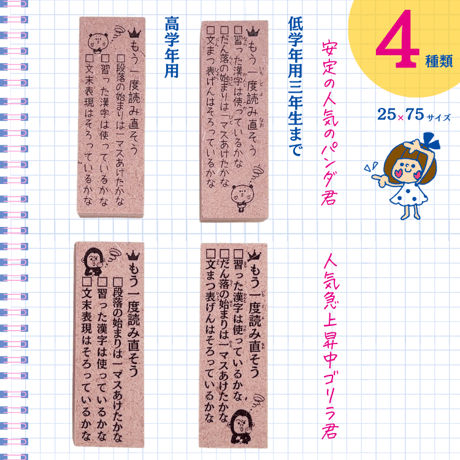 4種類
25×75サイズ
安定の人気のパンダ君
低学年用三年生まで
もう一度読み直そう
□習った漢字は使っているかな
□だん落の始まりは一マスあけたかな
□文まつ表げんはそろっているかな
高学年用
もう一度読み直そう
□段落の始まりは一マスあけたかな
□習った漢字は使っているかな
□文末表現はそろっているかな
人気急上昇中ゴリラ君
もう一度読み直そう
□習った漢字は使っているかな
□だん落の始まりは一マスあけたかな
□文まつ表げんはそろっているかな
もう一度読み直そう
□段落の始まりは一マスあけたかな
□習った漢字は使っているかな
□文末表現はそろっているかな